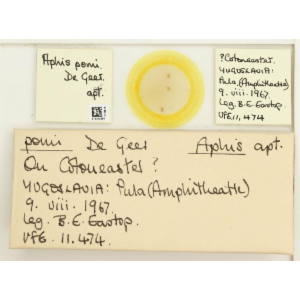 Aphis pomi.
De Geer.
apt.
?Cotoneaster.
YUGOSLAVIA:
Pula (Amphitheatre)
9. viii. 1967.
Leg. B.E. Eastop.
VFE 11,474
pomi De Geer Aphis apt.
On Cotoneaster?
YUGOSLAVIA: Pula (Amphitheatre)
9. viii. 1967.
Leg. B.E. Eastop.
VFE. 11.474.